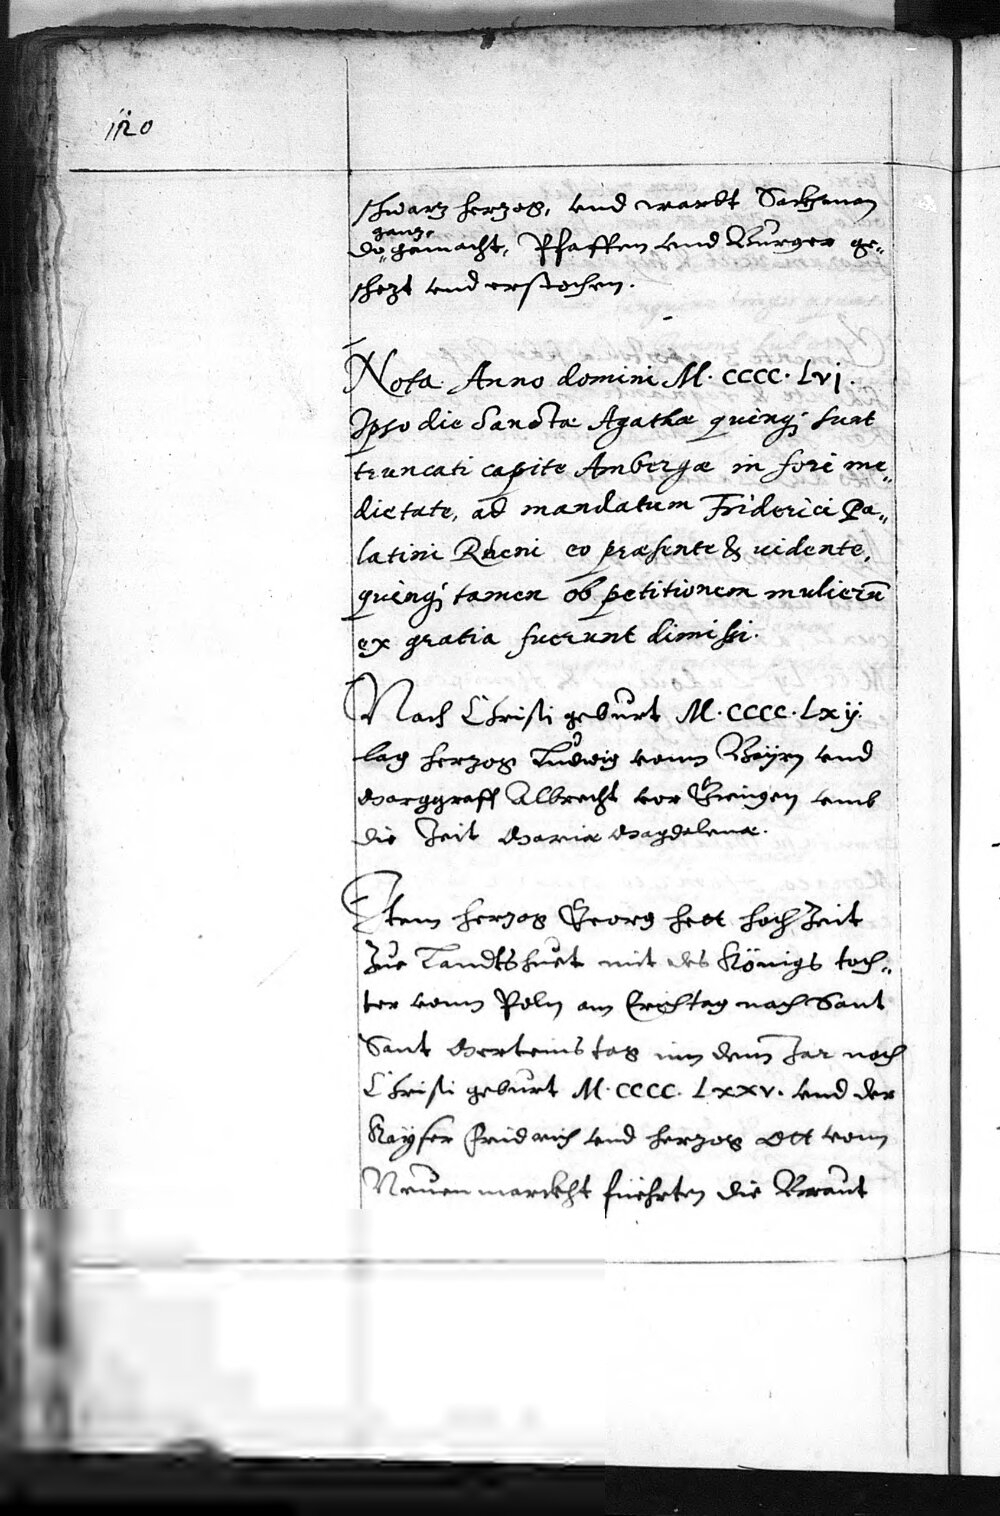 120
schwartz herzog, vnd wardt Sackhman
gantz
do gemacht, Pfaffen vnd Burger ge„
schezt vnd erstochen.
Nota. Anno domini M. CCCC. Lvj.
Ipso die Sanctæ Agathæ quinqꝫ sunt
truncati capite Ambergæ in fori me„
dietate, ad mandatum Friderici Pa„
latini Rheni eo præsente & uidente,
quinqꝫ tamen ob petitionem mulierū
ex gratia fuerunt dimissi.
Nach Christi geburt M. CCCC. Lxij.
lag herzog Ludwig vonn Bayrn vnd
Marggraff Albrecht vor Giengen vmb
die Zeit Mariæ Magdalenæ.
Item herzog Georg hett hochZeit
Zue Landtshuet mit des Königs toch„
ter vonn Poln am Erichtag nach Sant
Sant Merteins tag inn dem Jar nach
Christi geburt M. CCCC. Lxxv. vnd der
Kayser Fridrich vnd herzog Ott vonn
Neuenmarckht fuehrten die Braut